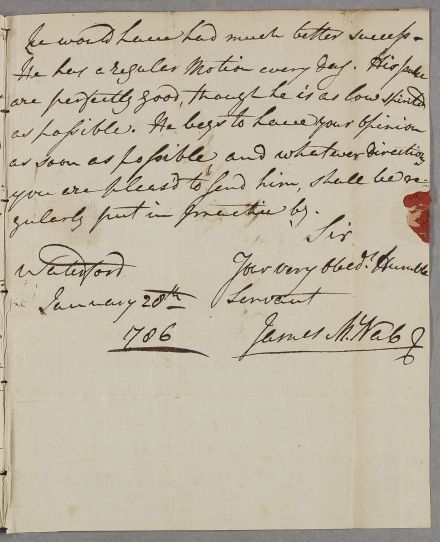 he would have had much better success -
He has a regular Motion every day. His pulse
are perfectly good, though he is as low spirited
as possible. He begs to have your Opinion
as soon as possible and whatever direction
you are pleasd to send him, shall be re-
gularly put in practice by.
Sir
Waterford Your very obed.t Humble
January 28th Servant
1786 James McNab